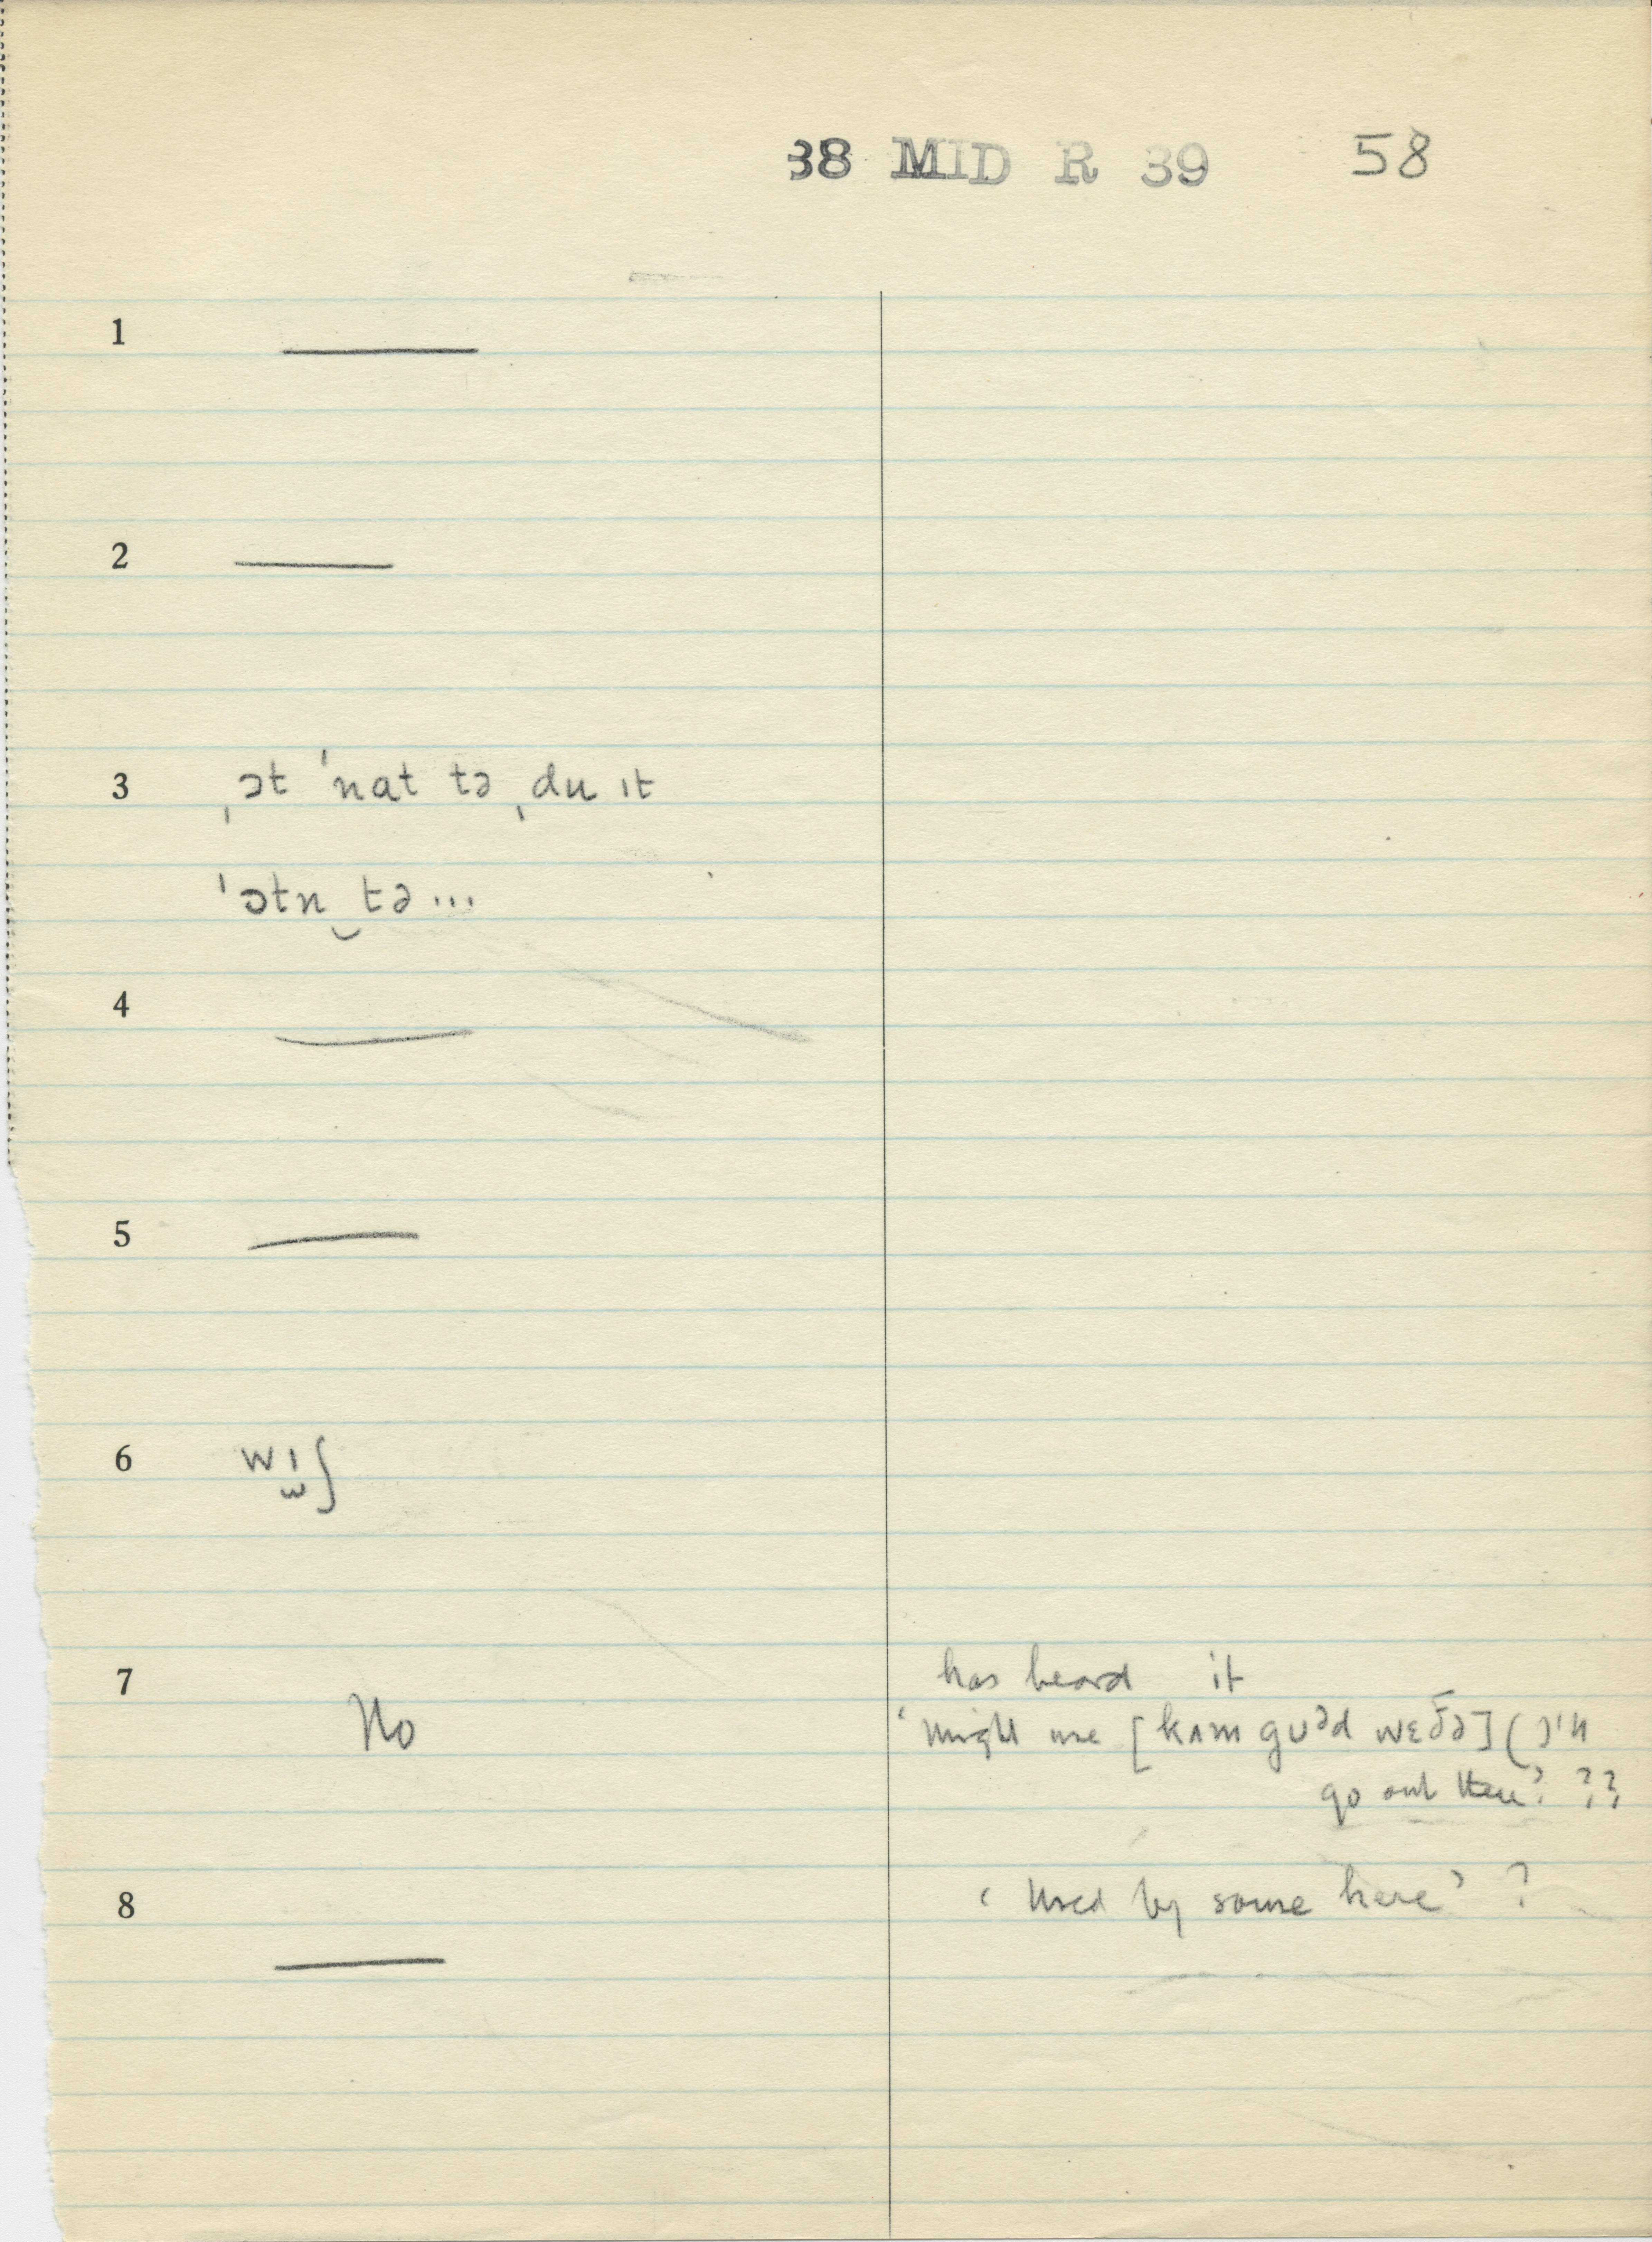 38 MID R 39 58
1
2
3 ˌɔt ˈnat tə ˌdu ɪt
ˈɔtn‿tə ...
4
5
6 wɪ̫ʃ
7 has heard it
No
‘might use [kʌm guᵊd wɛðə] (
go out then’ ??
8 ‘Used by some here’ ?